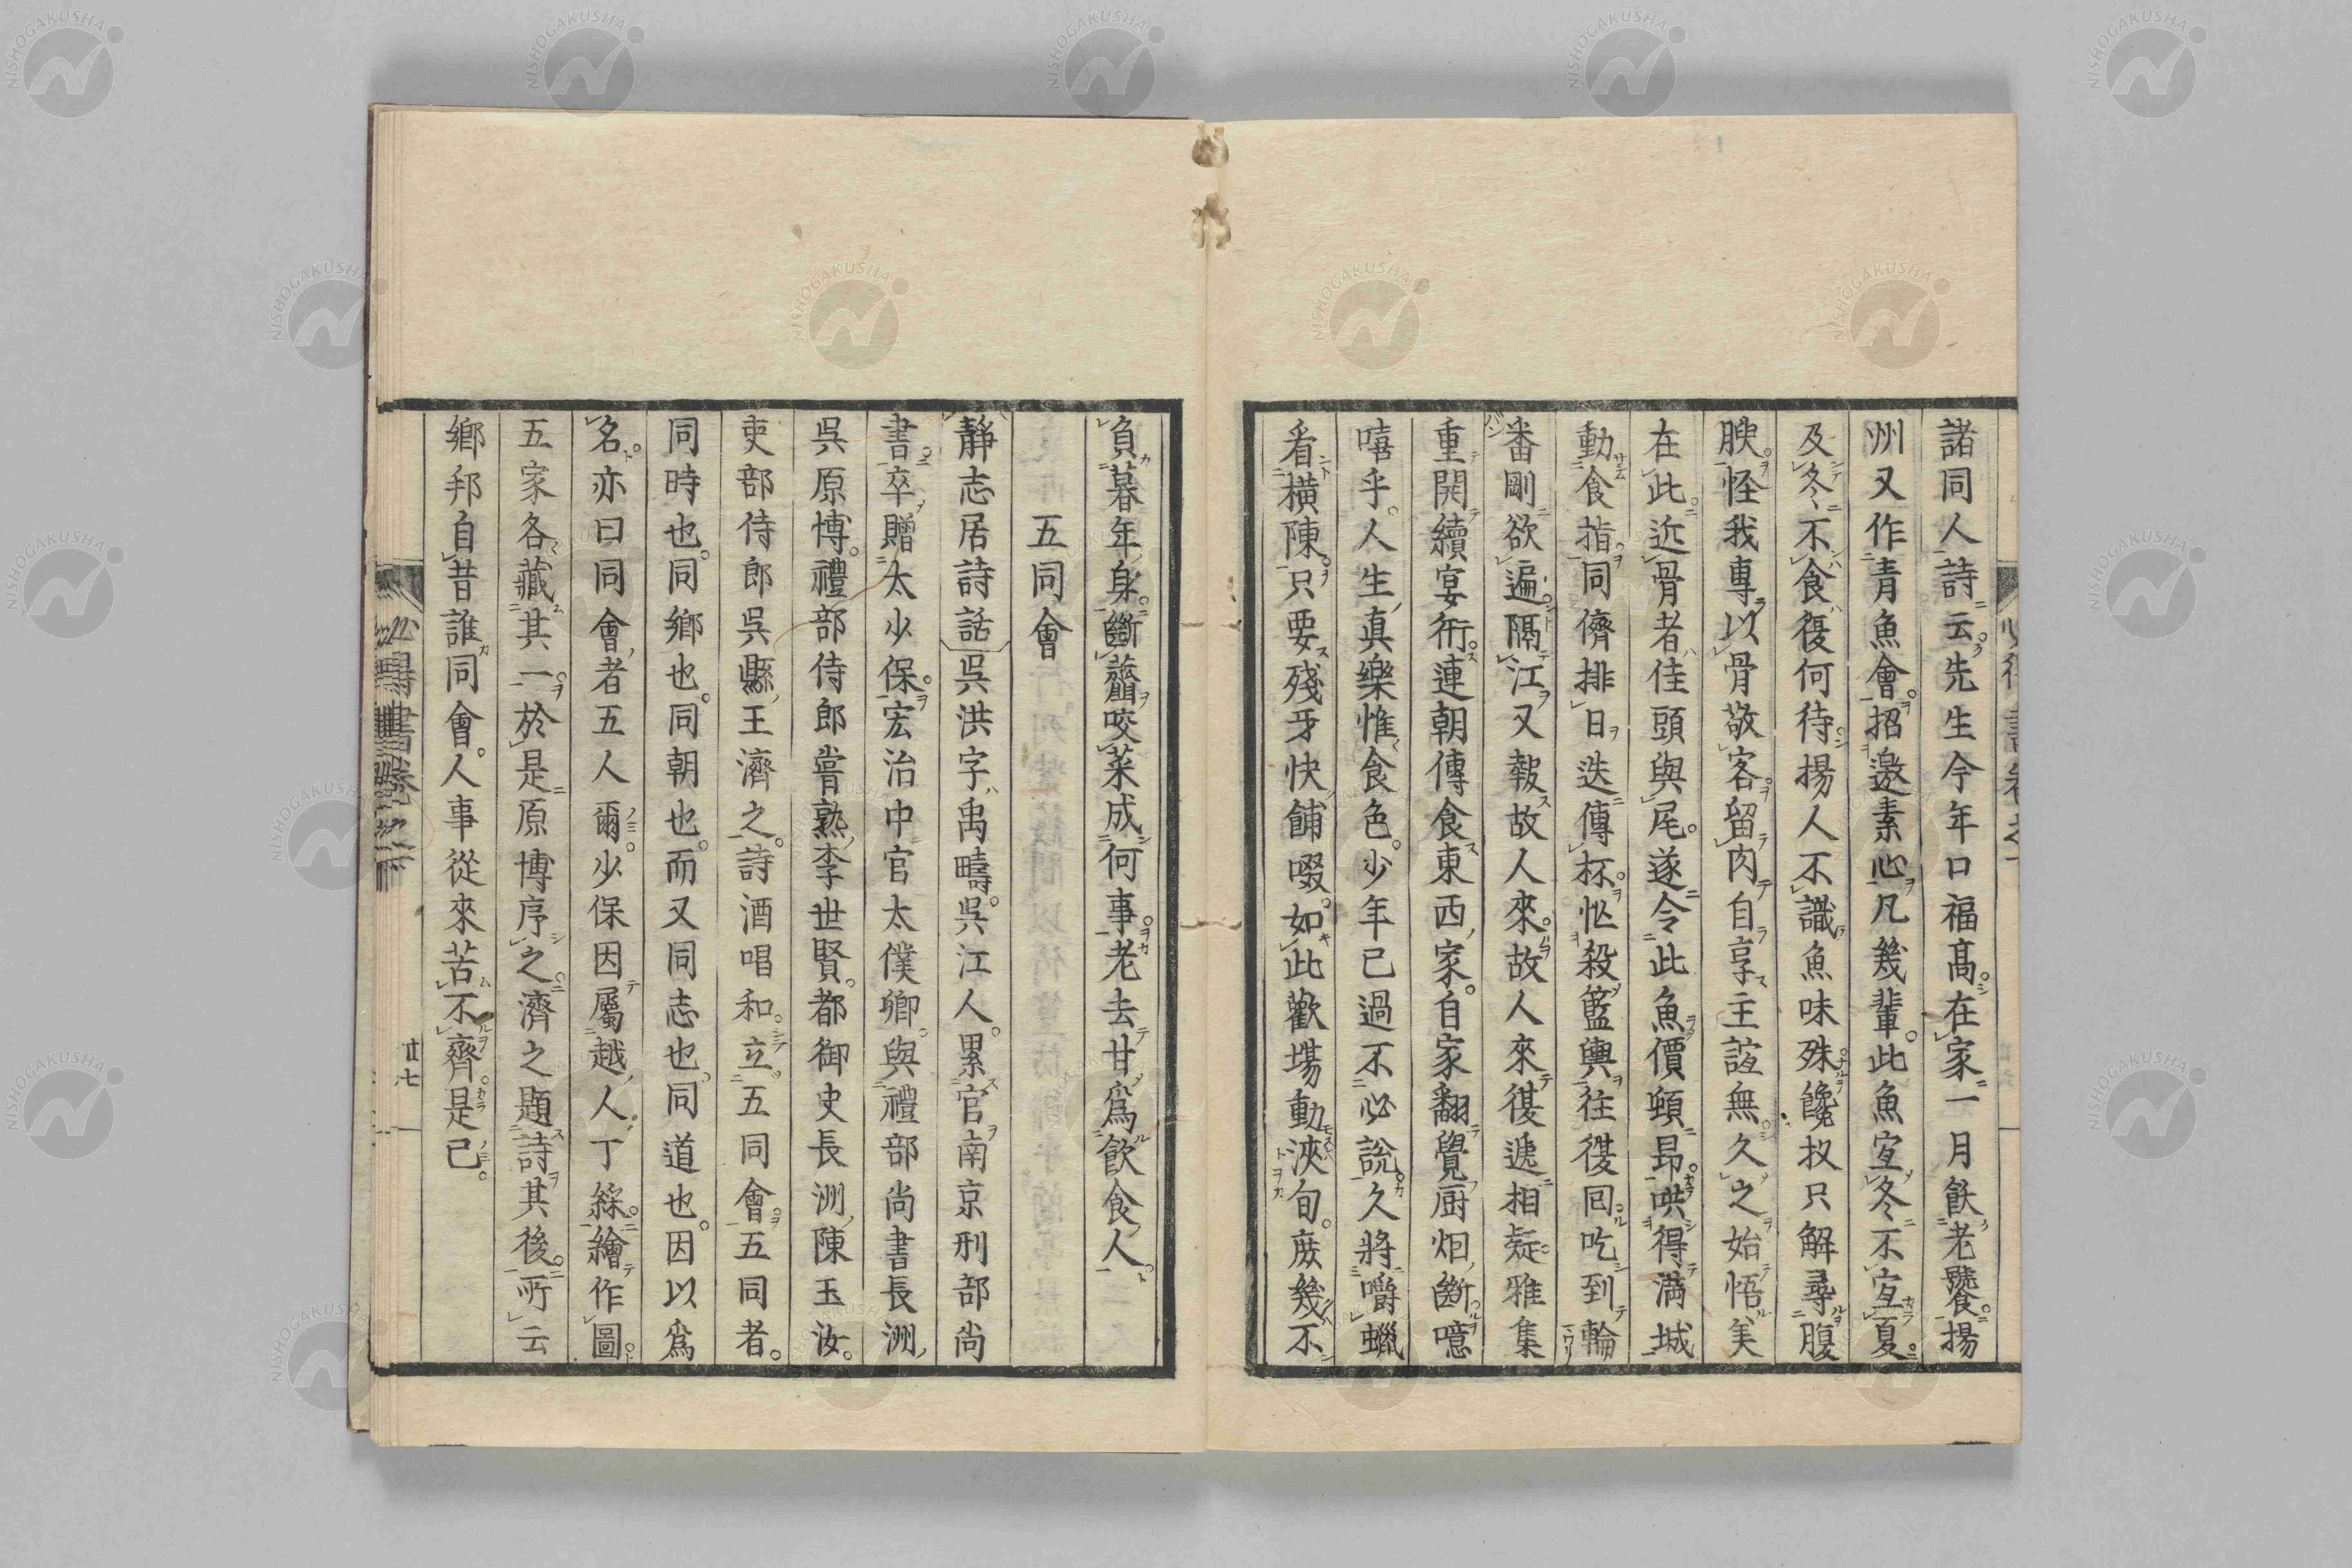 諸同人詩云先生今年口福高在家一月飫老饕揚
州又作青魚會招邀素心凡幾輩此魚宜冬不宜夏
及冬不食復何待揚人不識魚味殊饞扠只解尋腹
腴怪我專以骨敬客留肉自享主誼無久之始悟美
在此近骨者佳頭與尾遂令此魚價頓昂哄得滿城
動食指同儕排日迭傳杯恠殺籃輿往復回吃到輪
番剛欲遍隔江又報故人來故人來復遞相疑雅集
重開續宴衎連朝傳食東西家自家翻覺厨烟斷噫
嘻乎人生真樂惟食色少年已過不必說久將嚼蠟
看橫陳只要殘牙快餔啜如此歡場動浹旬庶幾不
負暮年身斷虀咬菜成何事老去甘為飲食人
五同會
靜志居詩話吳洪字禹疇吳江人累官南京刑部尚
書卒贈太少保宏治中官太僕卿與禮部尚書長洲
吳原博禮部侍郎嘗熟李世賢都御史長洲陳玉汝
吏部侍郎吳縣王濟之詩酒唱和立五同會五同者
同時也同鄉也同朝也而又同志也同道也因以為
名亦曰同會者五人爾少保因屬越人丁綵繪作圖
五家各藏其一於是原博序之濟之題詩其後所云
鄉邦自昔誰同會人事從來苦不齊是已
廿七